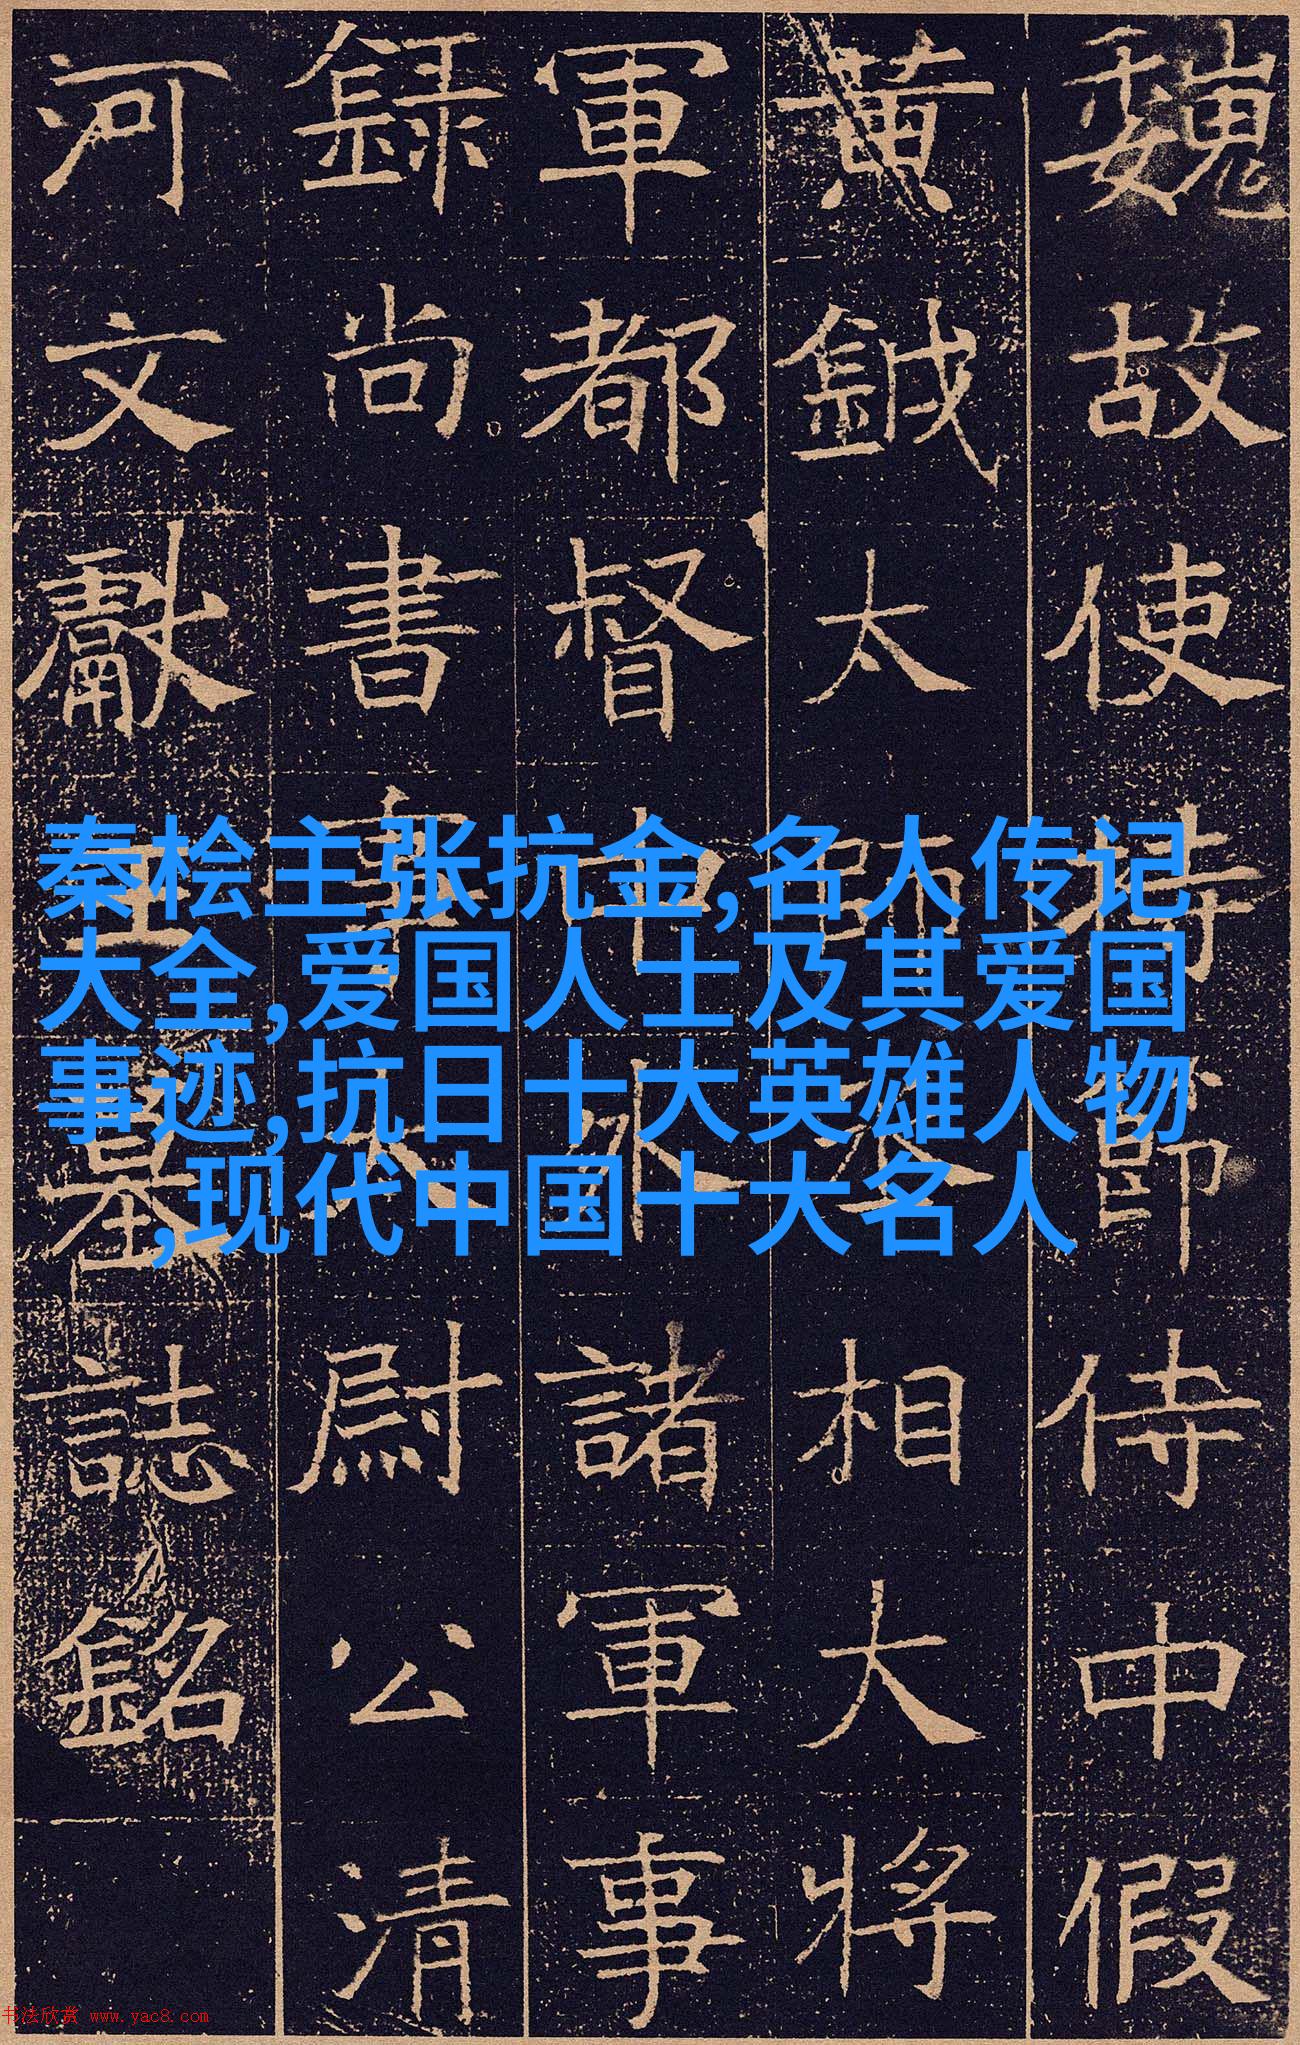 魏故使持節侍中假
黃鉞太師丞相大將
軍都督中外諸軍事
錄尚書事太尉公清
河文獻王墓誌銘
秦桧主张抗金,名人传记
大全,爱国人士及其爱国
事迹,抗日十大英雄人物
,现代中国十大名人
书法欣赏 www.yac8.com